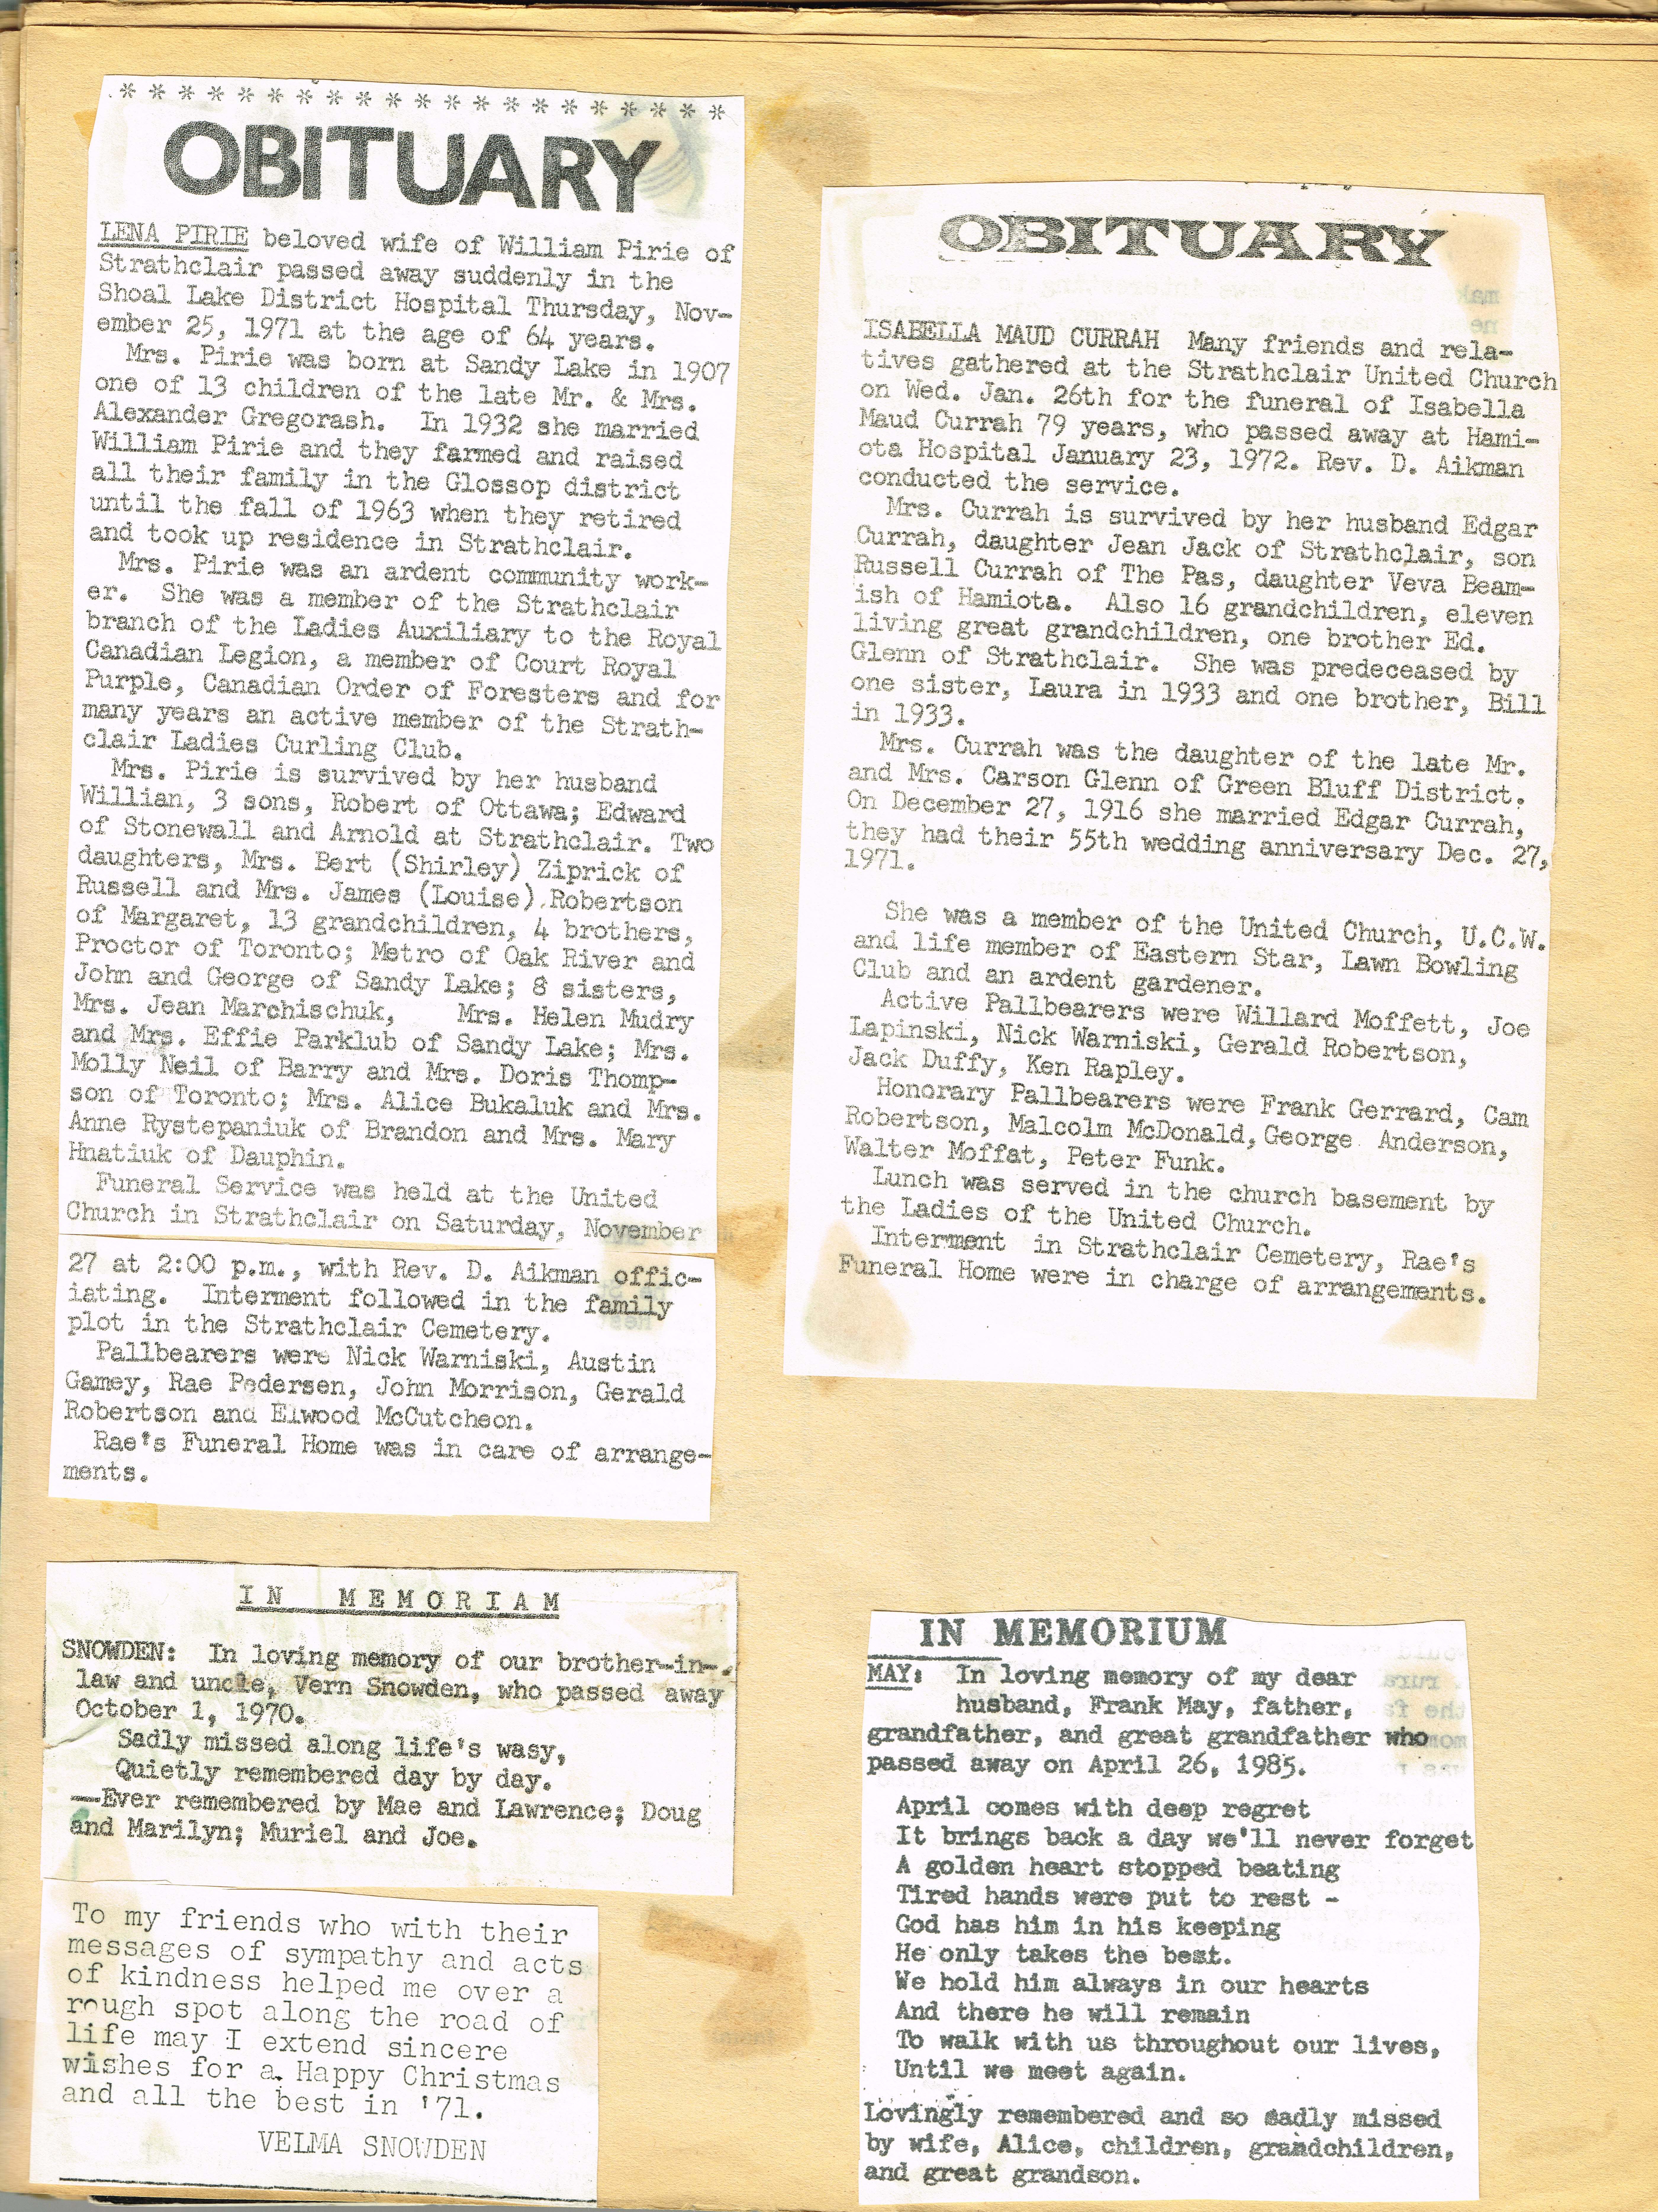 * * * * * * * * * * * * * * * * * * * * *
OBITUARY
LENA PIRIE beloved wife of William Pirie of
Strathclair passed away suddenly in the
Shoal Lake District Hospital Thursday, Nov-
ember 25, 1971 at the age of 64 years.
Mrs. Pirie was born at Sandy Lake in 1907
one of 13 children of the late Mr. & Mrs.
Alexander Gregorash. In 1932 she married
William Pirie and they farmed and raised
all their family in the Glossop district
until the fall of 1963 when they retired
and took up residence in Strathclair.
Mrs. Pirie was an ardent community work-
er. She was a member of the Strathclair
branch of the Ladies Auxiliary to the Royal
Canadian Legion, a member of Court Royal
Purple, Canadian Order of Foresters and for
many years an active member of the Strath-
clair Ladies Curling Club.
Mrs. Pirie is survived by her husband
Willian, 3 sons, Robert of Ottawa; Edward
of Stonewall and Arnold at Strathclair. Two
daughters, Mrs. Bert (Shirley) Ziprick of
Russell and Mrs. James (Louise) Robertson
of Margaret, 13 grandchildren, 4 brothers,
Proctor of Toronto; Metro of Oak River and
John and George of Sandy Lake; 8 sisters,
Mrs. Jean Marchischuk, Mrs. Helen Mudry
and Mrs. Effie Parklub of Sandy Lake; Mrs.
Molly Neil of Barry and Mrs. Doris Thomp-
son of Toronto; Mrs. Alice Bukaluk and Mrs.
Anne Rystepaniuk of Brandon and Mrs. Mary
Hnatiuk of Dauphin.
Funeral Service was held at the United
Church in Strathclair on Saturday, November
27 at 2:00 p.m., with Rev. D. Aikman offic-
iating. Interment followed in the family
plot in the Strathclair Cemetery.
Pallbearers were Nick Warniski, Austin
Gamey, Rae Pedersen, John Morrison, Gerald
Robertson and Elwood McCutcheon.
Rae's Funeral Home was in care of arrange-
ments.
IN MEMORIAM
SNOWDEN: In loving memory of our brother-in-
law and uncle, Vern Snowden, who passed away
October 1, 1970.
Sadly missed along life's wasy,
Quietly remembered day by day.
—Ever remembered by Mae and Lawrence; Doug
and Marilyn; Muriel and Joe.
To my friends who with their
messages of sympathy and acts
of kindness helped me over a
rough spot along the road of
life may I extend sincere
wishes for a Happy Christmas
and all the best in '71.
VELMA SNOWDEN
OBITUARY
ISABELLA MAUD CURRAH Many friends and rela-
tives gathered at the Strathclair United Church
on Wed. Jan. 26th for the funeral of Isabella
Maud Currah 79 years, who passed away at Hami-
ota Hospital January 23, 1972. Rev. D. Aikman
conducted the service.
Mrs. Currah is survived by her husband Edgar
Currah, daughter Jean Jack of Strathclair, son
Russell Currah of The Pas, daughter Veva Beam-
ish of Hamiota. Also 16 grandchildren, eleven
living great grandchildren, one brother Ed.
Glenn of Strathclair. She was predeceased by
one sister, Laura in 1933 and one brother, Bill
in 1933.
Mrs. Currah was the daughter of the late Mr.
and Mrs. Carson Glenn of Green Bluff District.
On December 27, 1916 she married Edgar Currah,
they had their 55th wedding anniversary Dec. 27,
1971.
She was a member of the United Church, U.C.W.
and life member of Eastern Star, Lawn Bowling
Club and an ardent gardener.
Active Pallbearers were Willard Moffett, Joe
Lapinski, Nick Warniski, Gerald Robertson,
Jack Duffy, Ken Rapley.
Honorary Pallbearers were Frank Gerrard, Cam
Robertson, Malcolm McDonald, George Anderson,
Walter Moffat, Peter Funk.
Lunch was served in the church basement by
the Ladies of the United Church.
Interment in Strathclair Cemetery, Rae's
Funeral Home were in charge of arrangements.
IN MEMORIUM
MAY: In loving memory of my dear
husband, Frank May, father,
grandfather, and great grandfather who
passed away on April 26, 1985.
April comes with deep regret
It brings back a day we'll never forget
A golden heart stopped beating
Tired hands were put to rest -
God has him in his keeping
He only takes the best.
We hold him always in our hearts
And there he will remain
To walk with us throughout our lives,
Until we meet again.
Lovingly remembered and so sadly missed
by wife, Alice, children, grandchildren,
and great grandson.